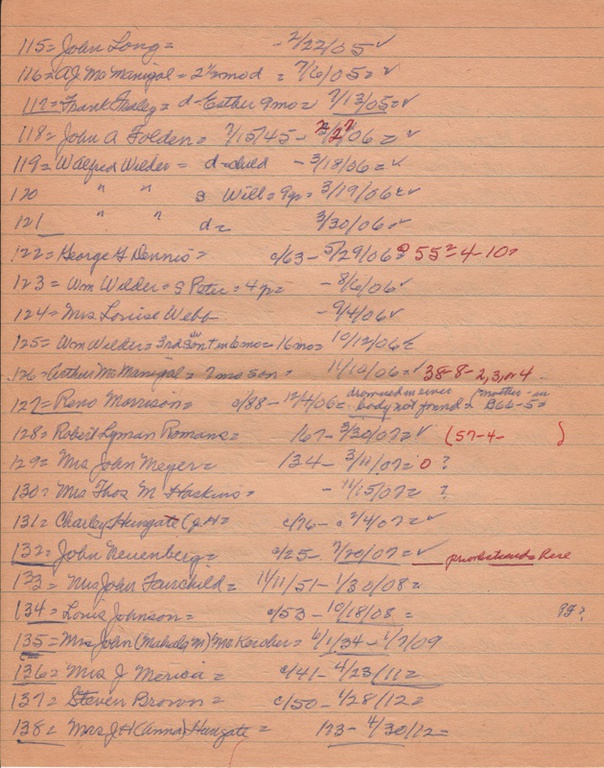 115= John Long= - 2/22/05 ✓
116= A.J. McManigal = 2½ mo d = 7/6/05= ✓
117= Frank = d-Esther 9mo= 7/13/05= ✓
118= John A Folden= 7/15/45 - 2/27/06 = ✓
119= Walfred Wilder = d-child - 3/18/06= ✓
120 " " S Will = 9yr= 3/19/06= ✓
121 " " d= 3/30/06= ✓
122= George G Dennis= c/63- 5/29/06= ? 55= 4-10=
123= Wm Wilder= S Peter = 4yr= - 8/6/06 ✓
124= Mrs Louise Webb - 9/4/06 ✓
125= Wm Wilder= 3rd son in 6mo= 16mo= 10/12/06 ✓
126= Arthur McManigal= 7 mo son= 11/10/06= ✓ 38-8-2,3, or 4
127= Reno Morrison= c/88- 12/4/06= drowned in river body not found = (mother - in B66-5=
128= Robert Lyman Romans= /67- 3/30/07= ✓ (57-4- )
129= Mrs John Meyer= 134- 3/11/07= 0 ?
130= Mrs Thos M Haskins= - 11/25/07= ?
131= Charley Hungate (J.H= c/76- 2/4/07= ✓
132= John Neuenberg= c/25- 7/20/07= ✓ here
133= Mrs John Fairchild= 11/11/51- 1/30/08=
134= Louis Johnson= c/53- 10/18/08 = ?
135= Mrs John (Mahala M) McKercher= 6/1/34- 1/7/09
136= Mrs J Merica= c/41- 4/23/11=
137= Steven Brown= c/50- 1/28/12=
138= Mrs J.H (Anna) Hungate = 123- 4/30/12=